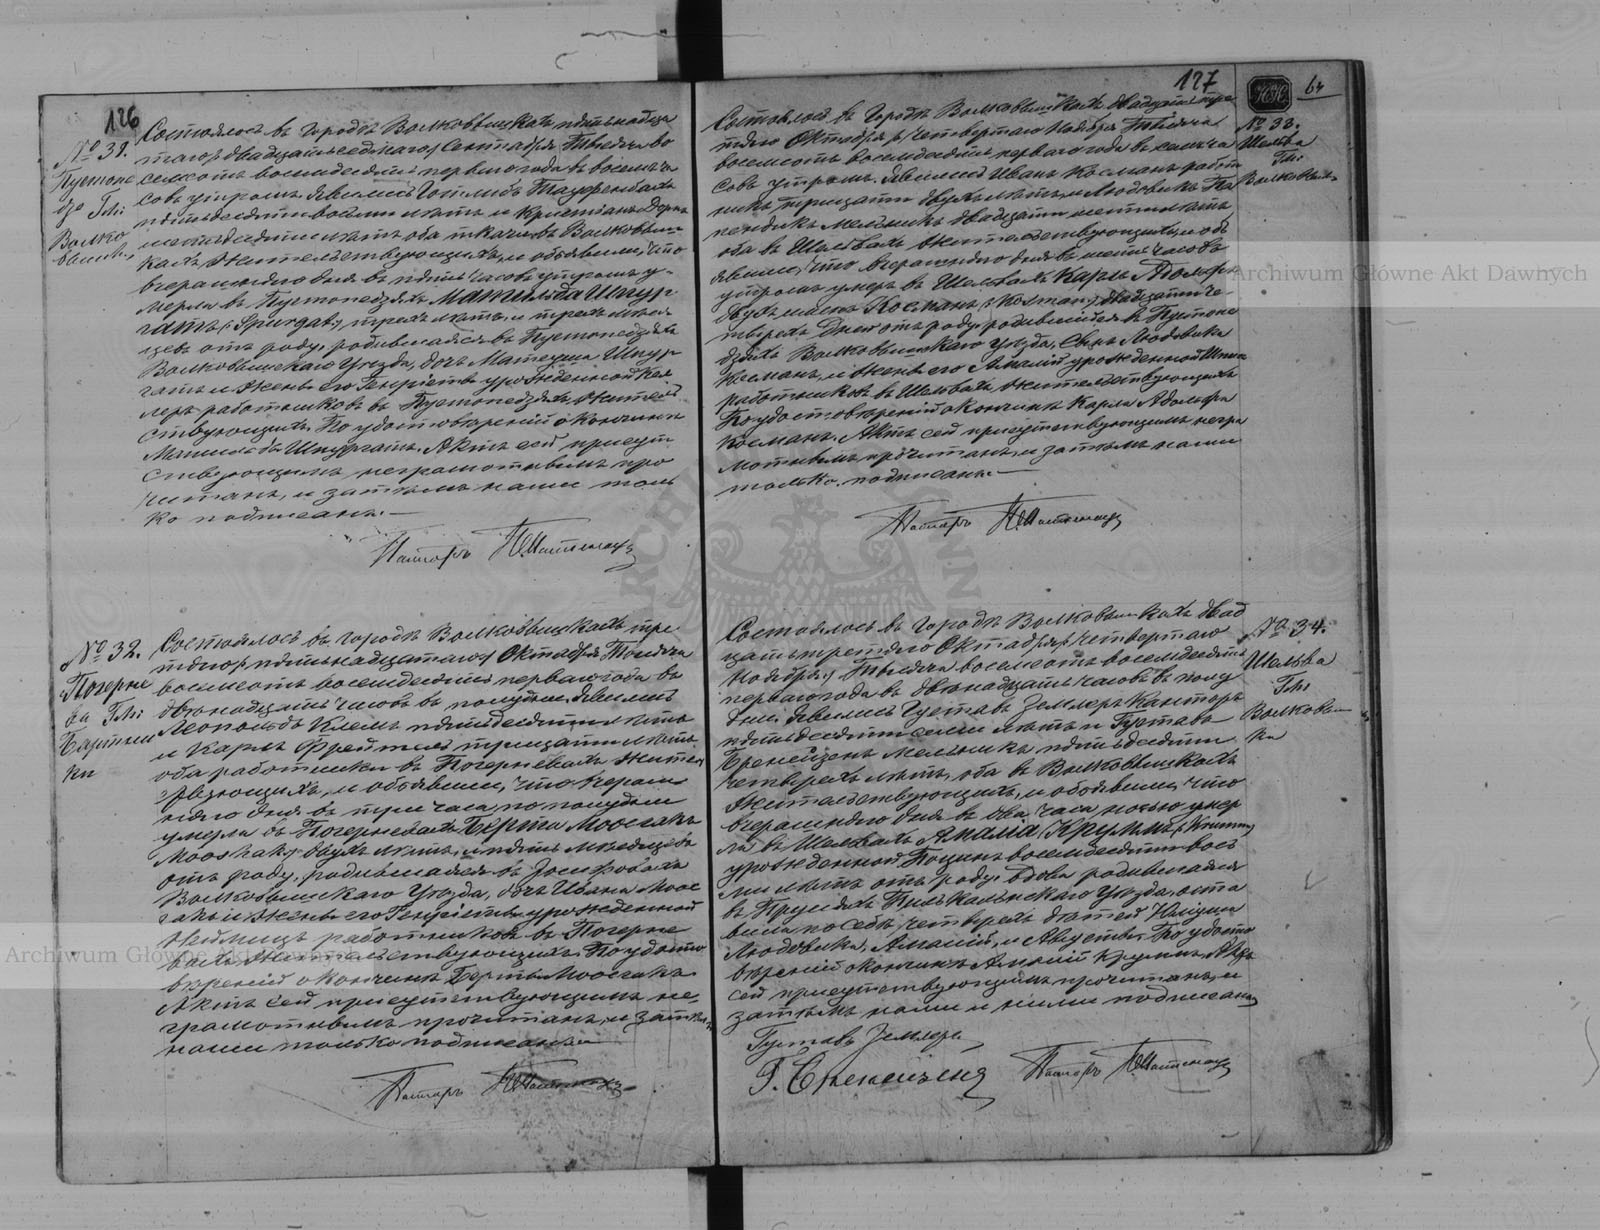 126
№ 31.
Пустопе
дзе Гм:
Волко
вышки
Состоялось въ городѣ Волковышкахъ пятнадца
таго /двадцать седьмаго/ Сентября Тысяча во
семсотъ восемьдесятъ перваго года въ восемь ча
совъ утромъ. Явились Готлибъ Тауренбахъ
пятьдесяти восьми лѣтъ и Кристіанъ
шестьдесяти лѣтъ оба ткачи въ Волковыш-
кахъ жительствующихъ, и объявили, что
вчерашняго дня въ пять часовъ утромъ у-
мерла въ Пустопедзяхъ Матильда Шпур
гатъ /Spurgat/ трехъ лѣтъ, и трехъ мѣся
цевъ отъ роду, родившаяся въ Пустопедзяхъ
Волковышскаго Уѣзда, дочь Матеуша Шпур
гатъ и жены его Генріеты урожденной Кел
леръ работниковъ въ Пустопедзяхъ житель
ствующихъ. По удостовѣреніи о кончинѣ
Матильды Шпургатъ. Актъ сей присут
ствующимъ неграмотнымъ про
читанъ, и затѣмъ нами толь
ко подписанъ.—
Пасторъ
№ 32.
Погерне
ва Гм:
Бартни
ки
Состоялось въ городѣ Волковышкахъ тре
тяго /пятнадцатаго/ Октября Тысяча
восемсотъ восемьдесятъ перваго года въ
двѣнадцать часовъ въ полудни. Явились
Леопольдъ Клемъ пятидесяти лѣтъ
и Карлъ Фрейтель тридцати лѣтъ
оба работники въ Погерневахъ житель
ствующихъ, и объявили, что вчераш
няго дня въ три часа по полудни
умерла въ Погерневахъ Берта Моосгакъ
/Mooshak/ двухъ лѣтъ, и пять мѣсяцевъ
отъ роду, родившаяся въ Іозефовахъ
Волковышскаго Уѣзда, дочь Ивана Моос
гакъ и жены его Генріеты урожденной
Неймицъ работниковъ въ Погерне
вахъ жительствующихъ. По удосто
вѣреніи о кончинѣ Берты Моосгакъ
Актъ сей присутствующимъ не-
грамотнымъ прочитанъ, и затѣмъ
нами только подписанъ.—
Пасторъ
127
64
№ 33.
Шельва
Гм:
Волковыш
Состоялось въ городѣ Волковышкахъ двадцать тре
тяго Октября /четвертаго Ноября/ Тысяча
восемсотъ восемьдесятъ перваго года въ семь ча
совъ утромъ. Явились Иванъ Косманъ работ
никъ тридцати двухъ лѣтъ, и Людовикъ Па
пендикъ мельникъ двадцати шести лѣтъ
оба въ Шельвахъ жительствующихъ, и объ
явили, что вчерашняго дня въ шесть часовъ
утромъ умеръ въ Шельвахъ Карлъ Адольфъ
двухъ именъ Косманъ /Kosman/ двадцати че
тырехъ дней отъ роду, родившійся въ Пустопе
дзяхъ Волковышскаго Уѣзда, сынъ Людовика
Косманъ, и жены его Амаліи урожденной
работниковъ въ Шельвахъ жительствующихъ
По удостовѣреніи о кончинѣ Карла Адольфа
Косманъ. Актъ сей присутствующимъ негра
мотнымъ прочитанъ, и затѣмъ нами
только подписанъ.—
Пасторъ
№ 34.
Шельва
Гм:
Волковыш
ки
Состоялось въ городѣ Волковышкахъ двад
цать третяго Октября /четвертаго
Ноября/ Тысяча восемсотъ восемьдесятъ
перваго года въ двѣнадцать часовъ въ полу
дни. Явились Густавъ Землеръ Канторъ
пятьдесяти семи лѣтъ и Густавъ
Бренейзенъ мельникъ пятьдесяти
четырехъ лѣтъ, оба въ Волковышкахъ
жительствующихъ, и объявили, что
вчерашняго дня въ два часа ночью умер
ла въ Шельвахъ Амалія Круммъ /Krumm/
урожденной восемьдесяти вось
ми лѣтъ отъ роду, вдова родившаяся
въ Пруссіяхъ Пилькальскаго Уѣзда, оста
вила по себѣ четырехъ дѣтей
Людовика, Амалій, и Августы. По удосто
вѣреніи о кончинѣ Амаліи Круммъ, Актъ
сей присутствующимъ прочитанъ, и
затѣмъ нами и ними подписанъ
Густавъ Земляръ
Г. Бренейзенъ
Пасторъ
Archiwum Główne Akt Dawnych
Archiwum Główne Akt Dawnych